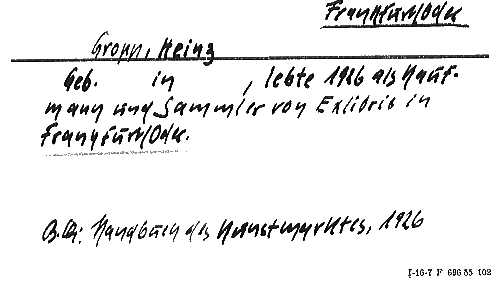 Frankfurt/Oder
Gropp, Heinz
Geb. in , lebte 1926 als Kauf-
mann und Sammler von Exlibris in
Frankfurt/Oder.
B.Qu.: Handbuch des Kunstmarktes, 1926
I-16-7 F 696 55 102